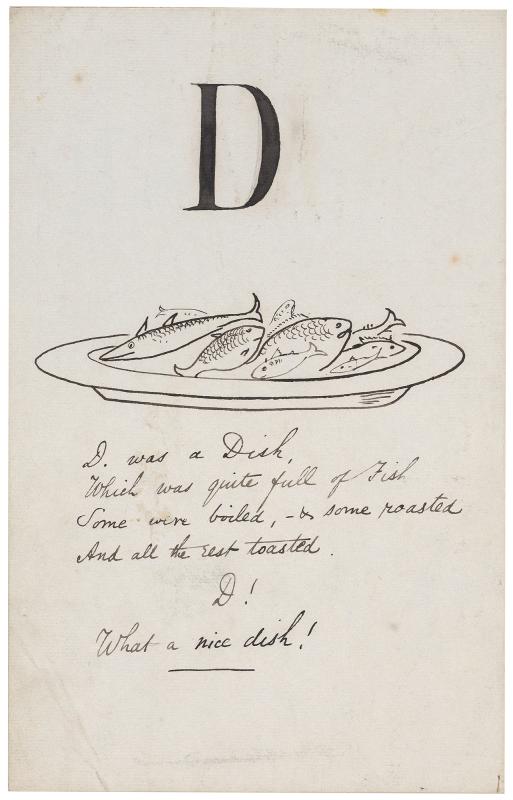 D
D. was a Dish,
Which was quite full of Fish
Some were boiled, - & some roasted
And all the rest toasted.
D!
What a nice dish!